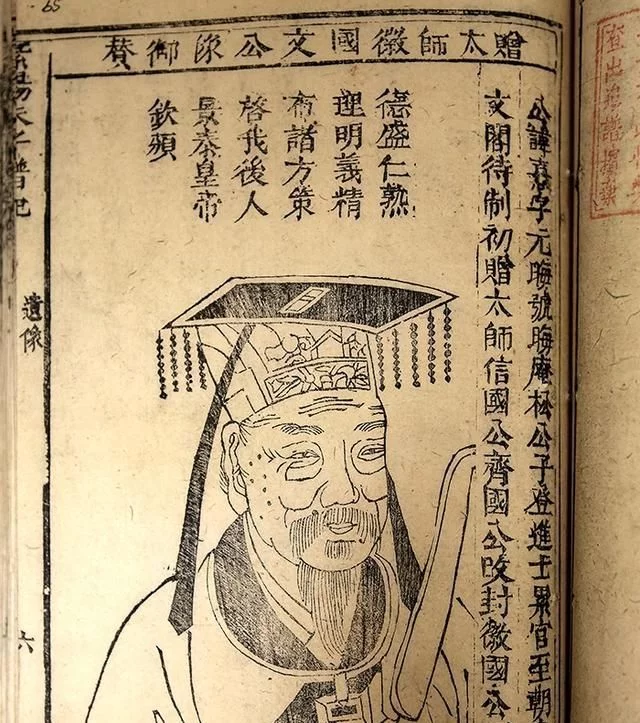 65
贈太師徽國文公像御賛
公諱熹字元晦號晦庵松公子登進士累官至朝
文閣待制初贈太師信國公齊國公改封徽國公
德盛仁熟
理明義精
布諸方策
啓我後人
景泰皇帝
欽頒
遺像
六